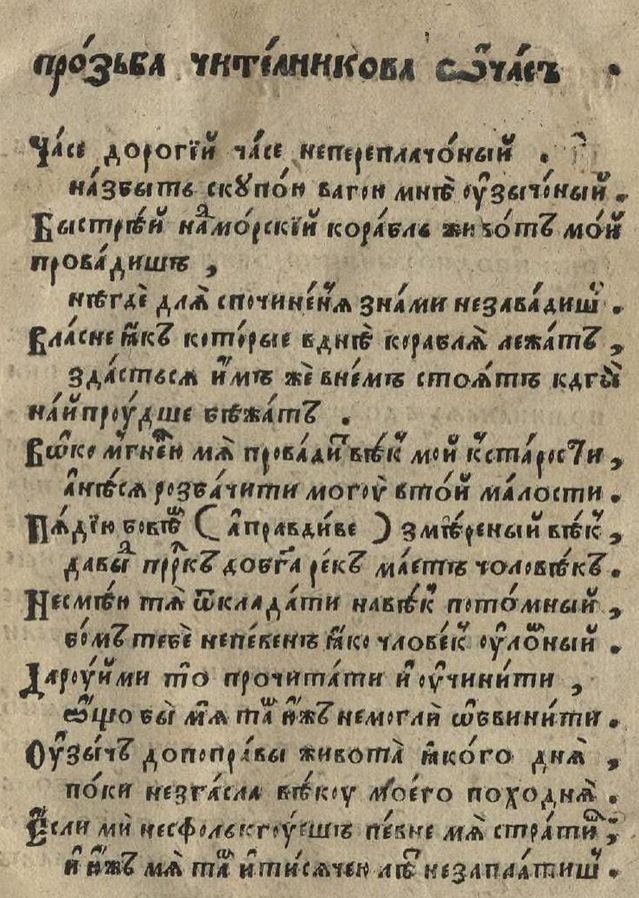 про́зьба чите́лникова ѡ҆ ча́съ .
Ча́се дорогі́й ча́се непереплачо́ный .
на́збытъ скупо́ю вагою мнѣ̀ оу҆зычо́ный .
Быстрѣ́й на́дморскі́й кора́бль живо́тъ мо́й
прова́дишъ ,
нѣгдѐ длѧ̀ спочине́нѧ зна́ми незава́дишъ .
Вла́сне ꙗ҆́къ кото́рые вднѣ̀ корабля̀ лежа́тъ ,
зда́стьсѧ и҆́мъ жѐ вне́мъ стоѧ́тъ кдгы̀
на́йпроудше бѣжа́тъ .
Вѡ҆ко мгне́ню мѧ̀ прова́дишъ вѣ́къ мой къ ста́рости ,
а҆нѣ́сѧ розба́чити могоу̀ вто́й ма́лости .
Пѧ́дїю бовѣ́мъ ( а҆правди́ве ) змѣ́реный вѣ́къ ,
давы́дъ прⷪ҇ркъ до бг҃а ре́къ ма́етъ чоловѣ́къ .
Несмѣ́ю тѧ̀ ѿклада́ти навѣ́къ пото́мный ,
бо́мъ тебѐ непе́венъ ꙗ҆́ко члове́къ оу҆ло́мный .
Дароу́йми то̀ прочита́ти и҆ оу҆чини́ти ,
ѡ҆що бы̀ мѧ̀ та́мъ ю҆́жъ немоглѝ ѡ҆бвини́ти .
Оу҆зы́чъ допопра́вы живота̀ ꙗ҆ко́го днѧ̀ ,
по́ки незга́сла вѣ́коу моего̀ походнѧ̀ .
Если мѝ несфолькгоу́ешъ пе́вне мѧ̀ стра́тишъ ,
и҆ ю҆́жъ мѧ̀ та́мъ и҆ ти́сѧчею лѣ́тъ незапла́тишъ .